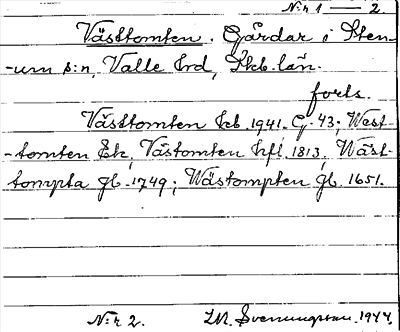 N:r 1 — 2.
Västtomten. Gårdar i Sten-
-um s:n, Valle hrd, Skb. län.
forts.
Västtomten Ekb. 1941. G. 43; West-
-tomten Ek, Västomten hfl. 1813, Wäst-
tompta Jb. 1749; Wästompten Jb. 1651.
N:r 2. I.M. Svenungsson. 1944.